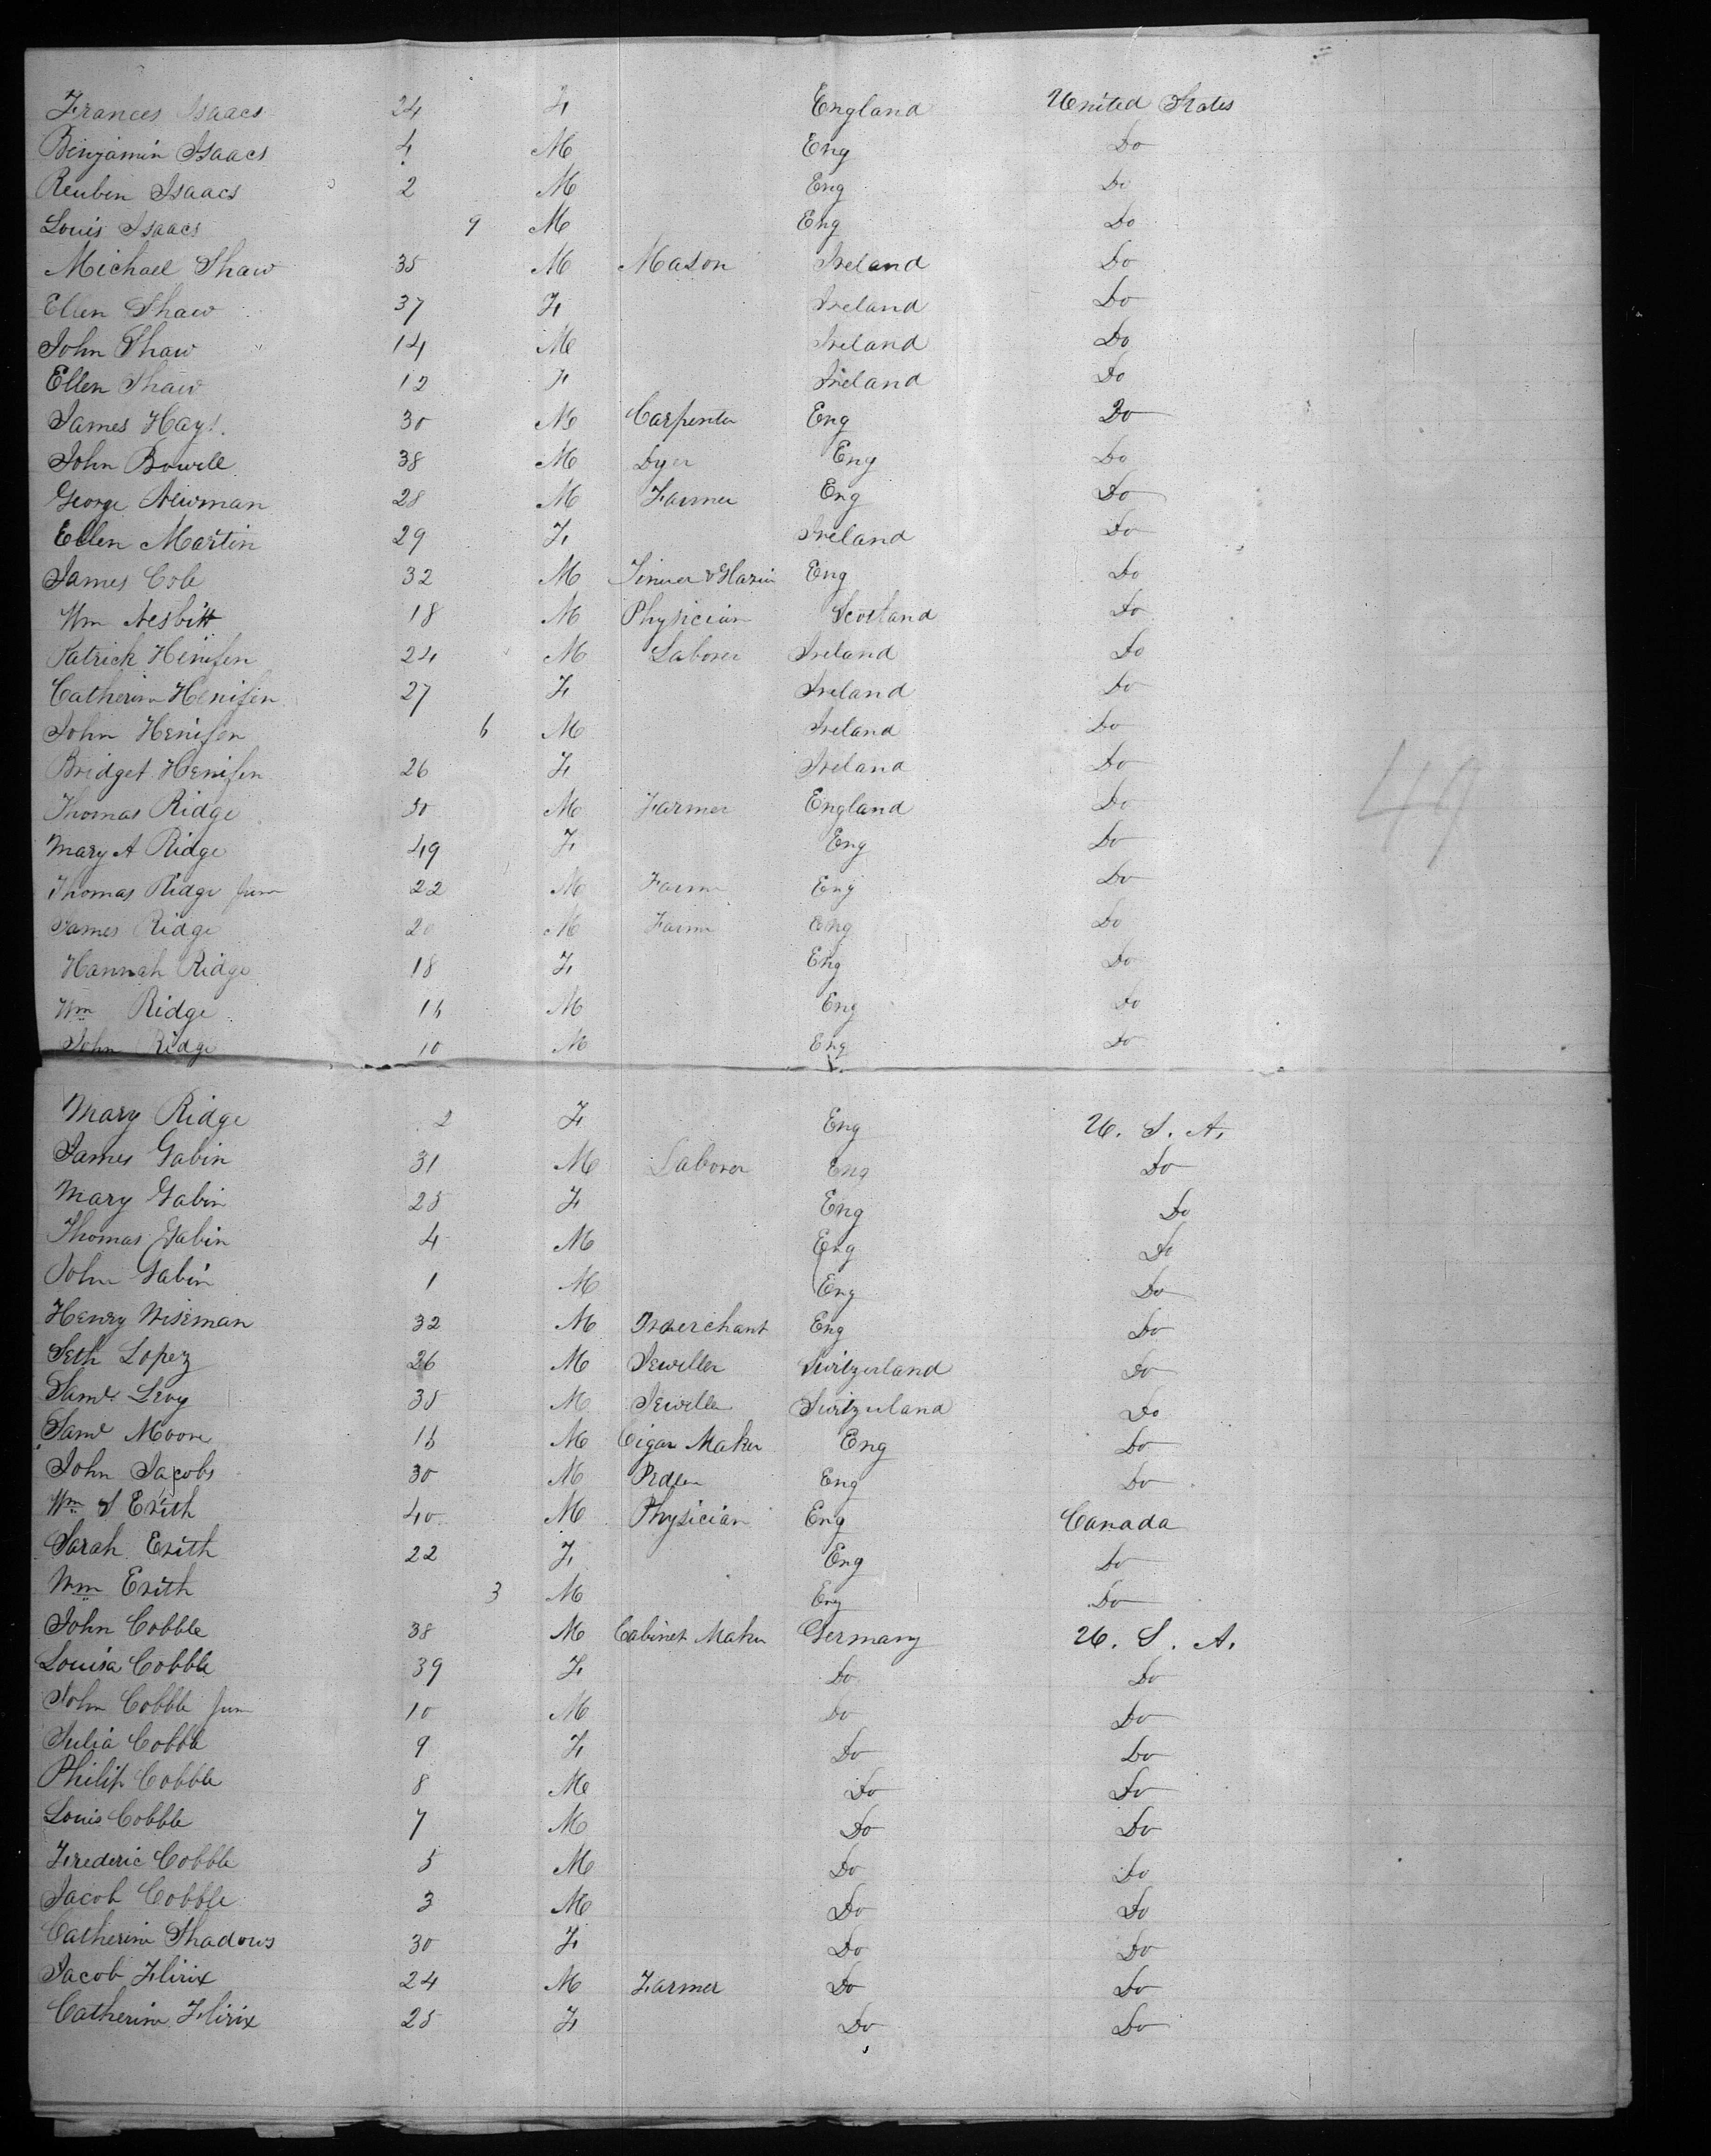 Frances Isaacs 24 F England United States
Benjamin Isaacs 4 M Eng Do
Reubin Isaacs 2 M Eng Do
Louis Isaacs 9 M Eng Do
Michael Shaw 35 M Mason Ireland Do
Ellen Shaw 37 F Ireland Do
John Shaw 14 M Ireland Do
Ellen Shaw 12 F Ireland Do
James Hays 30 M Carpenter Eng Do
John Bowell 38 M Dyer Eng Do
George Newman 28 M Farmer Eng Do
Ellen Martin 29 F Ireland Do
James Cole 32 M Eng Do
Wm Nesbitt 18 M Physician Scotland Do
Patrick Henifen 24 M Laborer Ireland Do
Catherin Henifen 27 F Ireland Do
John Henifen 6 M Ireland Do
Bridget Henifen 26 F Ireland Do
Thomas Ridge 50 M Farmer England Do
49
Mary A Ridge 49 F Eng Do
Thomas Ridge Jun 22 M Farm Eng Do
James Ridge 20 M Farm Eng Do
Hannah Ridge 18 F Eng Do
Wm Ridge 16 M Eng Do
John Ridge 10 M Eng Do
Mary Ridge 2 F Eng U. S. A.
James Gabin 31 M Laborer Eng Do
Mary Gabin 25 F Eng Do
Thomas Gabin 4 M Eng Do
John Gabin 1 M Eng Do
Henry Wiseman 32 M Merchant Eng Do
Seth Lopez 26 M Jeweller Switzerland Do
Saml Levy 35 M Jeweller Switzerland Do
Saml Moore 16 M Cigar Maker Eng Do
John Jacobs 30 M Pedler Eng Do
Wm S Erith 40 M Physician Eng Canada
Sarah Erith 22 F Eng Do
Wm Erith 3 M Eng Do
John Cobble 38 M Cabinet Maker Germany U. S. A.
Louisa Cobble 39 F Do Do
John Cobble Jun 10 M Do Do
Julia Cobble 9 F Do Do
Philip Cobble 8 M Do Do
Louis Cobble 7 M Do Do
Frederic Cobble 5 M Do Do
Jacob Cobble 3 M Do Do
Catherin Shadows 30 F Do Do
Jacob Flirix 24 M Farmer Do Do
Catherin Flirix 25 F Do Do